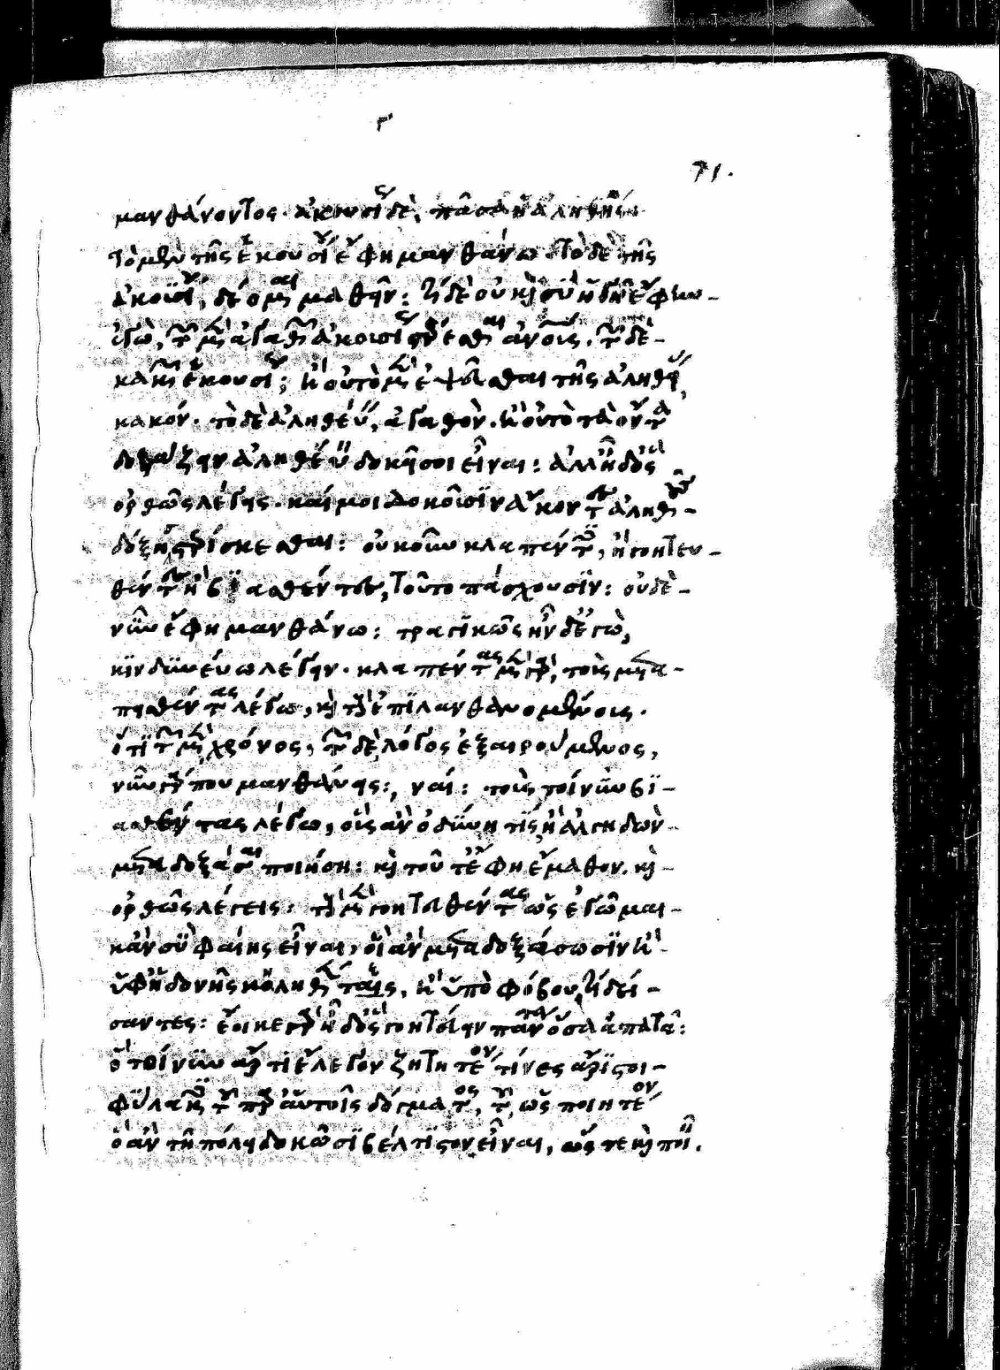 μανθάνοντος· ἀκουσίως δὲ, πᾶσα ἡ ἀληθής.
Τὸ μὲν τῆς ἑκουσίου ἔφη μανθάνω· τὸ δὲ τῆς
ἀκουσίου, δέομαι μαθεῖν: τί δὲ οὐ καὶ σὺ ἡγῇ ἔφην
ἐγὼ, τῶν μὲν ἀγαθῶν ἀκουσίως στέρεσθαι ἀνους. τῶν δὲ
κακῶν ἑκουσίως; ἢ οὐ τὸ μὲν ἐψεῦσθαι τῆς ἀληθείας
κακόν· τὸ δὲ ἀληθεύειν, ἀγαθόν· ἢ οὐ τὸ τὰ ὄντα
δοξάζειν ἀληθεύειν δοκεῖ σοι εἶναι: ἀλλ' ἦ δ' ὃς
ὀρθῶς λέγεις· καί μοι δοκοῦσιν ἄκοντες ἀληθοῦς
δόξης στερίσκεσθαι: οὐκοῦν κλαπέντες, ἢ γοητευ-
θέντες ἢ βιασθέντες, τοῦτο πάσχουσιν: οὐδὲ
νῦν ἔφη μανθάνω: τραγικῶς ἦν δ' ἐγὼ,
κινδυνεύω λέγειν· κλαπέντας μὲν γὰρ, τοὺς μετα-
πεισθέντας λέγω, καὶ τοὺς ἐπιλανθανομένους.
ὅτι τῶν μὲν χρόνος, τῶν δὲ λόγος ἐξαιρούμενος,
νῦν γάρ που μανθάνεις:, ναί: τοὺς τοίνυν βι-
ασθέντας λέγω, οὓς ἂν ὀδύνη τις ἢ ἀλγηδὼν
μεταδοξάσαι ποιήσῃ: καὶ τοῦτ' ἔφη ἔμαθον. καὶ
ὀρθῶς λέγεις: τοὺς μὲν γοητευθέντας ὡς ἐγῶμαι
κἂν σὺ φαίης εἶναι, οἳ ἂν μεταδοξάσωσιν ἢ
ὑφ' ἡδονῆς κηληθέντες, ἢ ὑπὸ φόβου τί δεί-
σαντες: ἔοικε γὰρ ἦ δ' ὃς γοητεύειν πάντα ὅσα ἀπατᾷ:
ὃ τοίνυν ἄρτι ἔλεγον ζητητέον τίνες ἄριστοι
φύλακες τοῦ παρ' αὑτοῖς δόγματος, τοῦτο ὡς ποιητέον
ὃ ἂν τῇ πόλει δοκῶσι βέλτιστον εἶναι, ὥς τε καὶ ποιεῖν.
71.